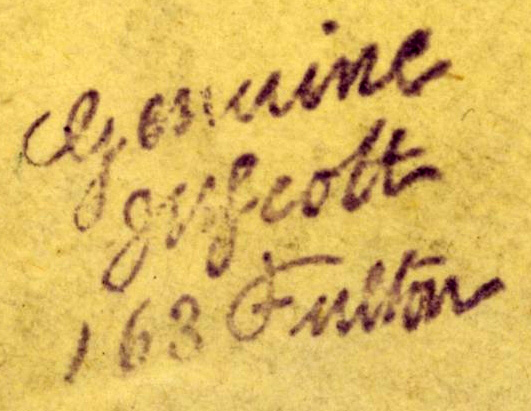 Genuine
JWScott
163 Fulton